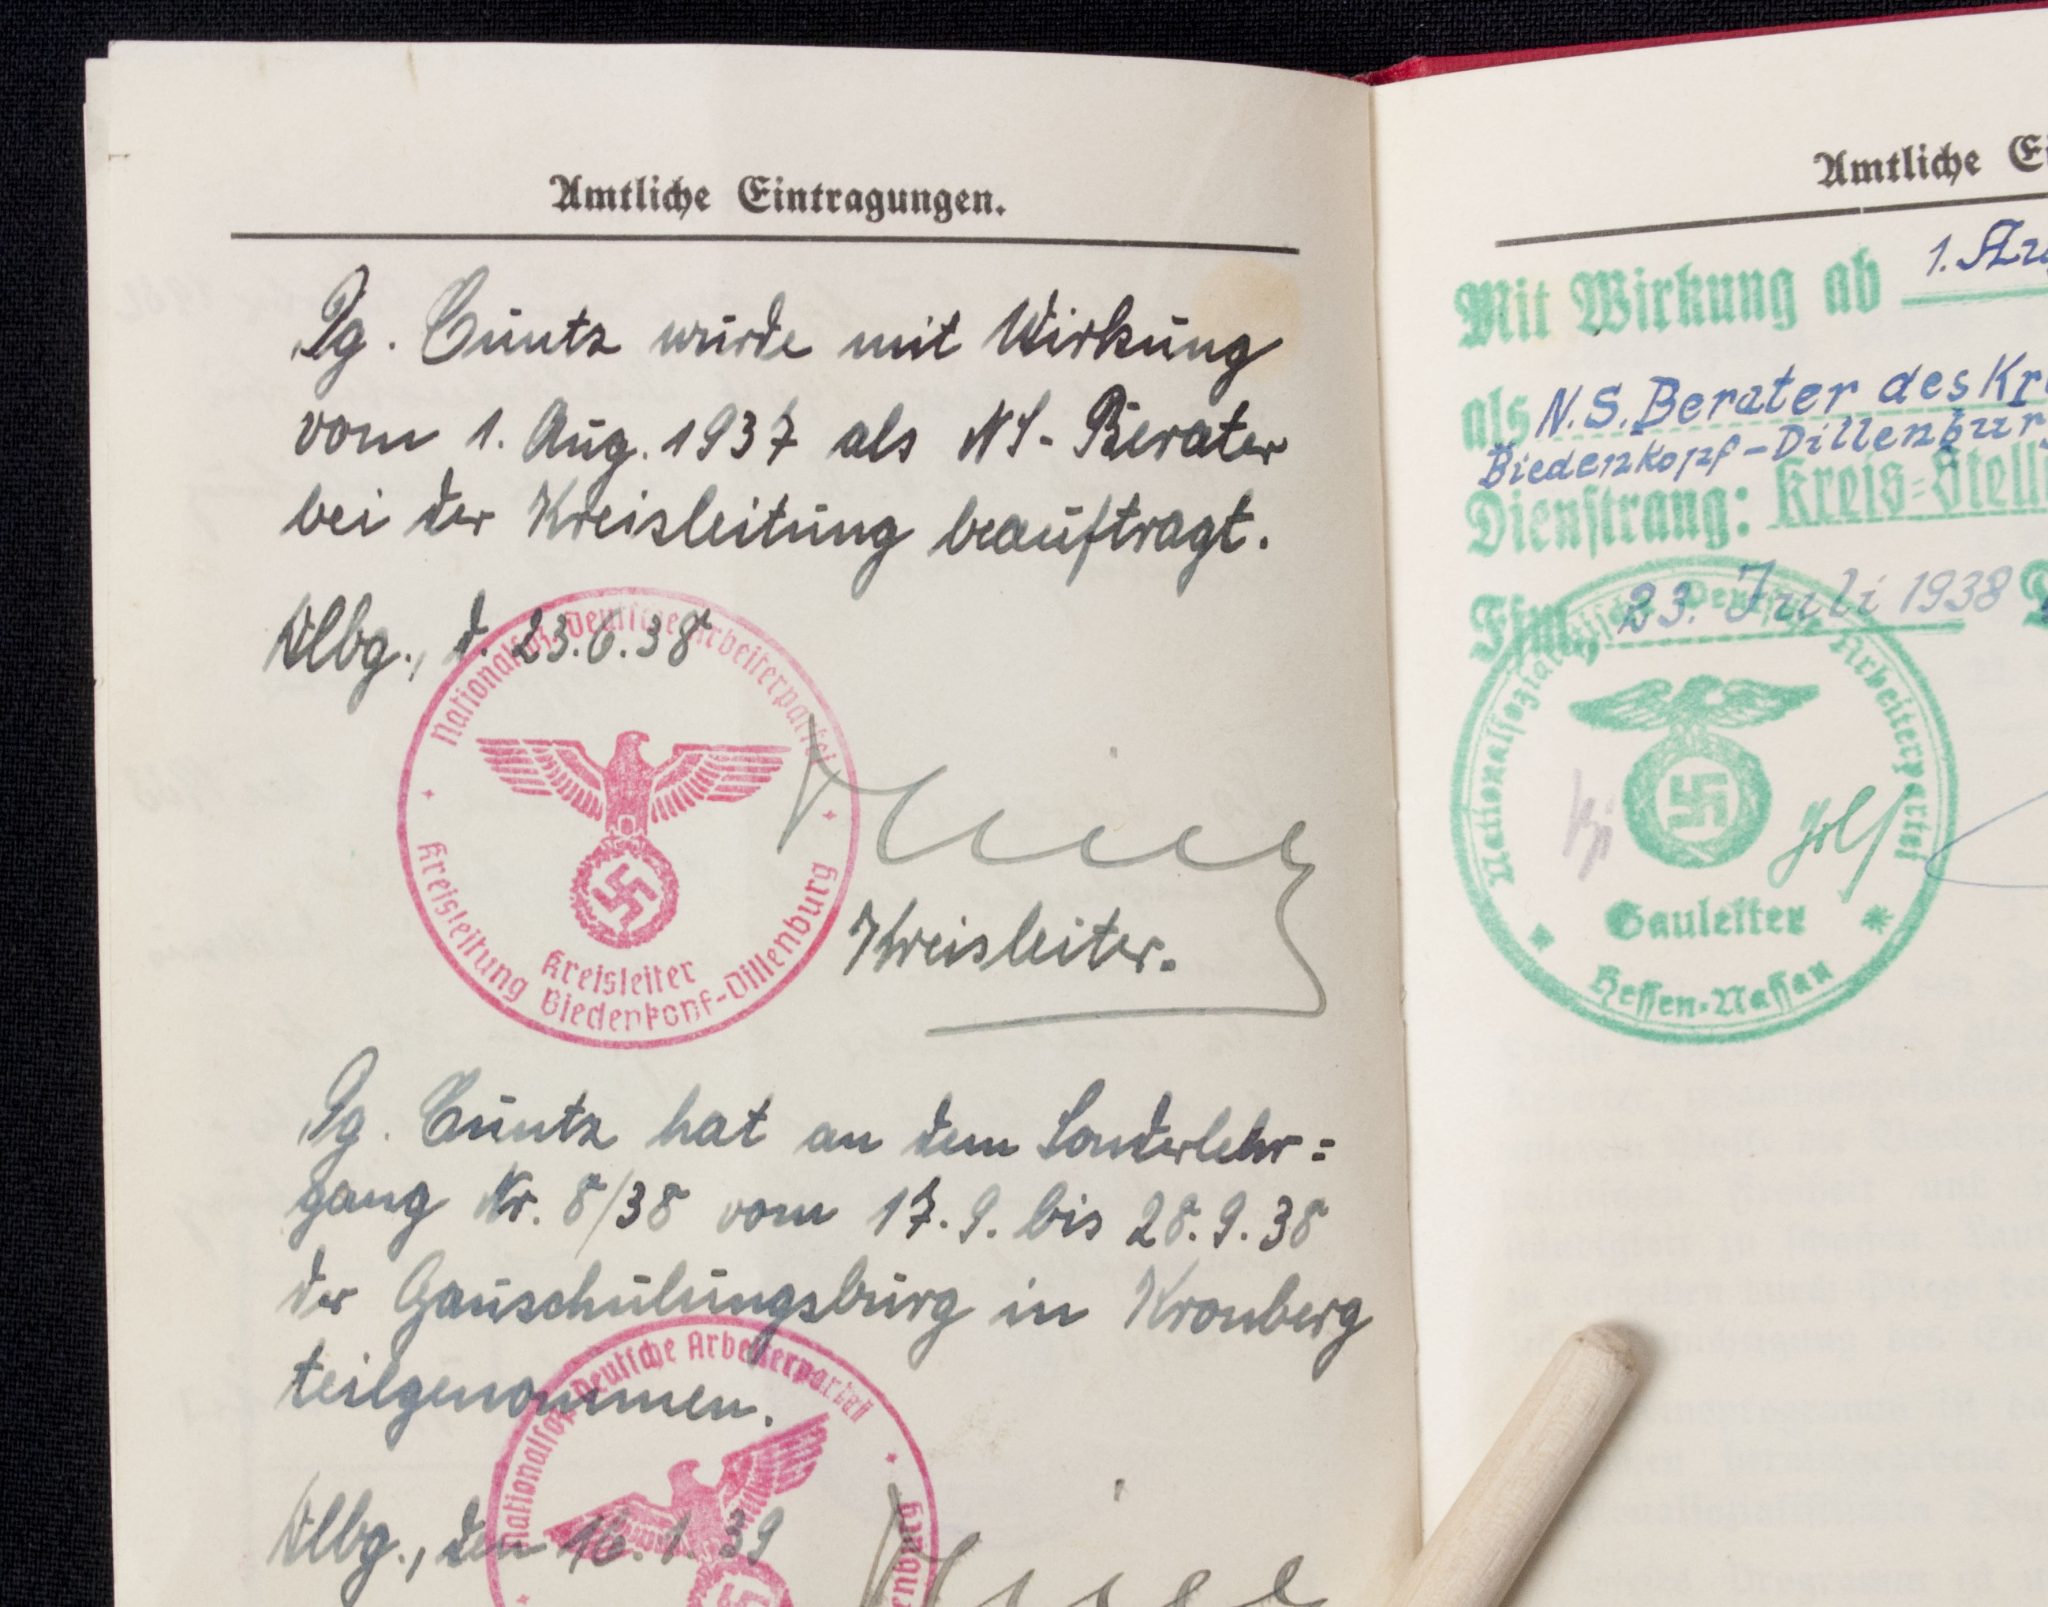 Amtliche Eintragungen.
Pg. Cuntz wurde mit Wirkung
vom 1. Aug. 1937 als NS-Berater
bei der Kreisleitung beauftragt.
Dlbg., d. 23.6.38
Nationalsoz. Deutsche Arbeiterpartei
Kreisleiter
Kreisleitung Biedenkopf-Dillenburg
Kreisleiter.
Pg. Cuntz hat an dem Sonderlehr=
gang Nr. 8/38 vom 17.9. bis 28.9.38
der Gauschulungsburg in Kronberg
teilgenommen.
Nationalsoz. Deutsche Arbeiterpartei
Dlbg., den 16.1.39
enburg
Amtliche Ei
Mit Wirkung ab 1. Aug
als N.S. Berater des Kre
Biedenkopf-Dillenbur
Dienstrang: Kreis=Stell
Ffm., 23. Juli 1938
Nationalsozialistische Deutsche Arbeiterpartei
Gauleiter
Hessen-Nassau